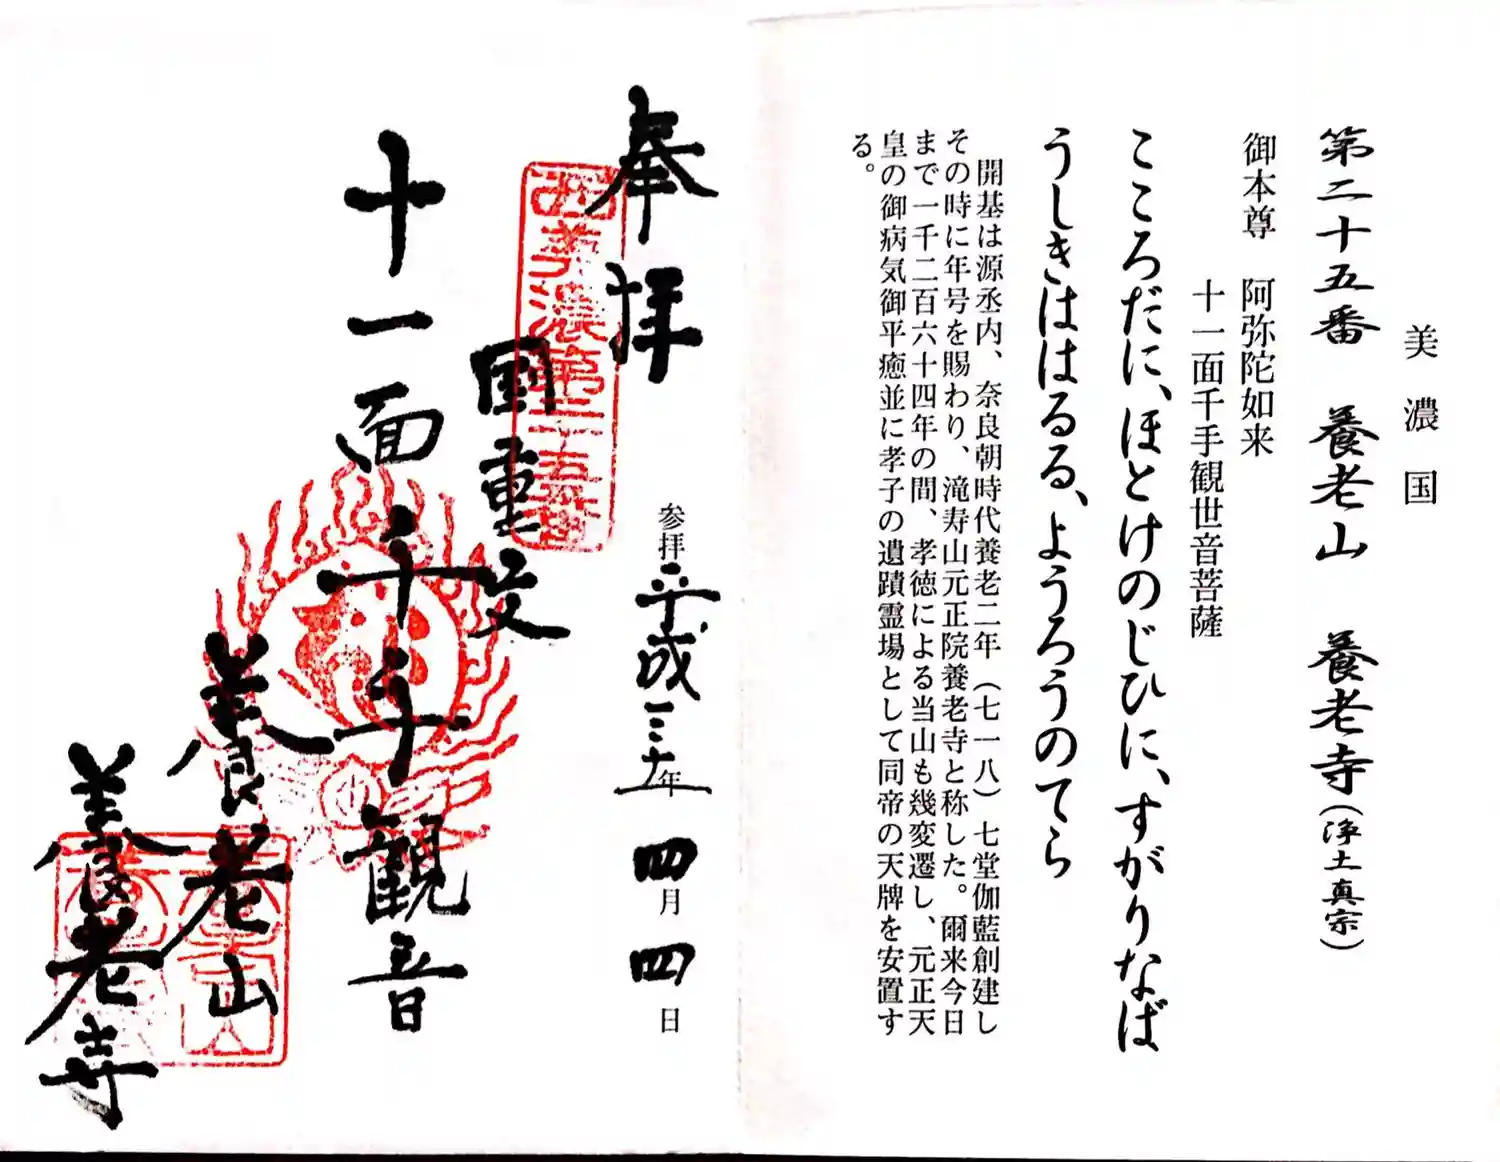 美濃国
第二十五番 養老山 養老寺(浄土真宗)
御本尊 阿弥陀如来
十一面千手観世音菩薩
こころだに、ほとけのじひに、すがりなば
うしきははるる、ようろうのてら
開基は源丞内、奈良朝時代養老二年(七一八)七堂伽藍創建し
その時に年号を賜わり、滝寿山元正院養老寺と称した。爾来今日
まで一千二百六十四年の間、孝徳による当山も幾変遷し、元正天
皇の御病気御平癒並に孝子の遺蹟霊場として同帝の天牌を安置す
る。
奉拝
西美濃第二十五番
参拝 平成三十年 四月 四日
国重文
十一面千手観音
養老山
養老寺